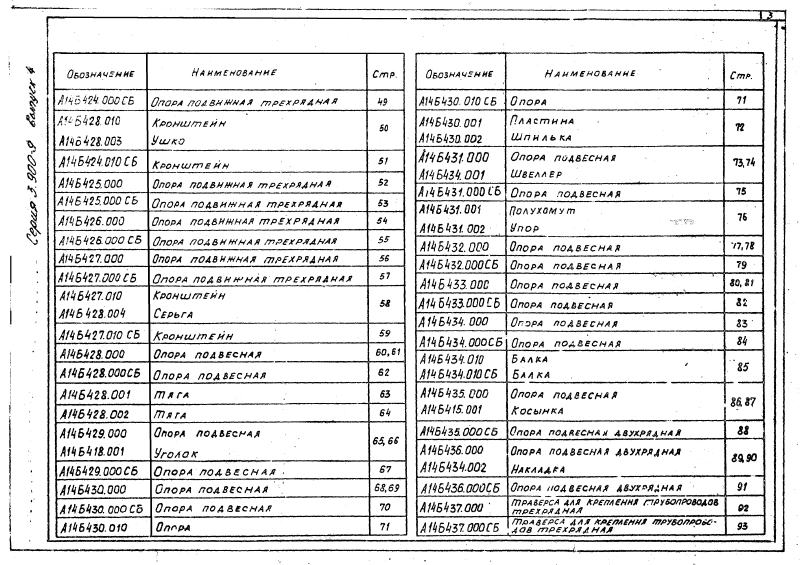 3
Серия 3.900-9 выпуск 4
Обозначение Наименование Стр.
А14Б424.000 СБ Опора подвижная трехрядная 49
А14Б428.010 Кронштейн 50
А14Б428.003 Ушко
А14Б424.010 СБ Кронштейн 51
А14Б425.000 Опора подвижная трехрядная 52
А14Б425.000 СБ Опора подвижная трехрядная 53
А14Б426.000 Опора подвижная трехрядная 54
А14Б426.000 СБ Опора подвижная трехрядная 55
А14Б427.000 Опора подвижная трехрядная 56
А14Б427.000 СБ Опора подвижная трехрядная 57
А14Б427.010 Кронштейн 58
А14Б428.004 Серьга
А14Б427.010 СБ Кронштейн 59
А14Б428.000 Опора подвесная 60,61
А14Б428.000 СБ Опора подвесная 62
А14Б428.001 Тяга 63
А14Б428.002 Тяга 64
А14Б429.000 Опора подвесная 65,66
А14Б418.001 Уголок
А14Б429.000 СБ Опора подвесная 67
А14Б430.000 Опора подвесная 68,69
А14Б430.000 СБ Опора подвесная 70
А14Б430.010 Опора 71
Обозначение Наименование Стр.
А14Б430.010 СБ Опора 71
А14Б430.001 Пластина 72
А14Б430.002 Шпилька
А14Б431.000 Опора подвесная 73,74
А14Б434.001 Швеллер
А14Б431.000 СБ Опора подвесная 75
А14Б431.001 Полухомут 76
А14Б431.002 Упор
А14Б432.000 Опора подвесная 77,78
А14Б432.000 СБ Опора подвесная 79
А14Б433.000 Опора подвесная 80,81
А14Б433.000 СБ Опора подвесная 82
А14Б434.000 Опора подвесная 83
А14Б434.000 СБ Опора подвесная 84
А14Б434.010 Балка 85
А14Б434.010 СБ Балка
А14Б435.000 Опора подвесная 86,87
А14Б415.001 Косынка
А14Б435.000 СБ Опора подвесная двухрядная 88
А14Б436.000 Опора подвесная двухрядная 89,90
А14Б434.002 Накладка
А14Б436.000 СБ Опора подвесная двухрядная 91
А14Б437.000 Траверса для крепления трубопроводов 92
трехрядная
А14Б437.000 СБ Траверса для крепления трубопрово- 93
дов трехрядная